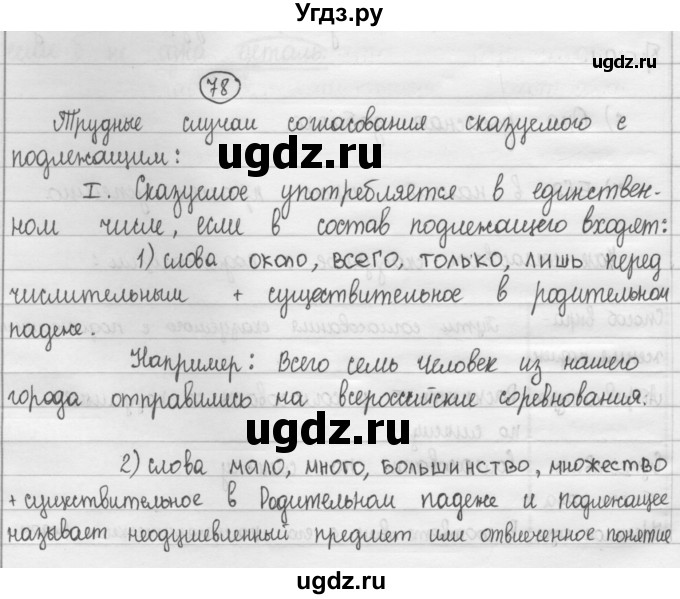 Угдз.ру
ugdz.ru
78
ugdz.ru
Трудные случаи согласования сказуемого с
подлежащим:
ugdz.ru
I. Сказуемое употребляется в единствен-
ном числе, если в состав подлежащего входят:
1) слова около, всего, только, лишь перед
ugdz.ru
числительным + существительное в родительном
падеже.
Например: Всего семь человек из нашего
города отправились на всероссийские соревнования.
ugdz.ru
2) слова мало, много, большинство, множество
+ существительное в Родительном падеже и подлежащее
называет неодушевленный предмет или отвлеченное понятие
ugdz.ru